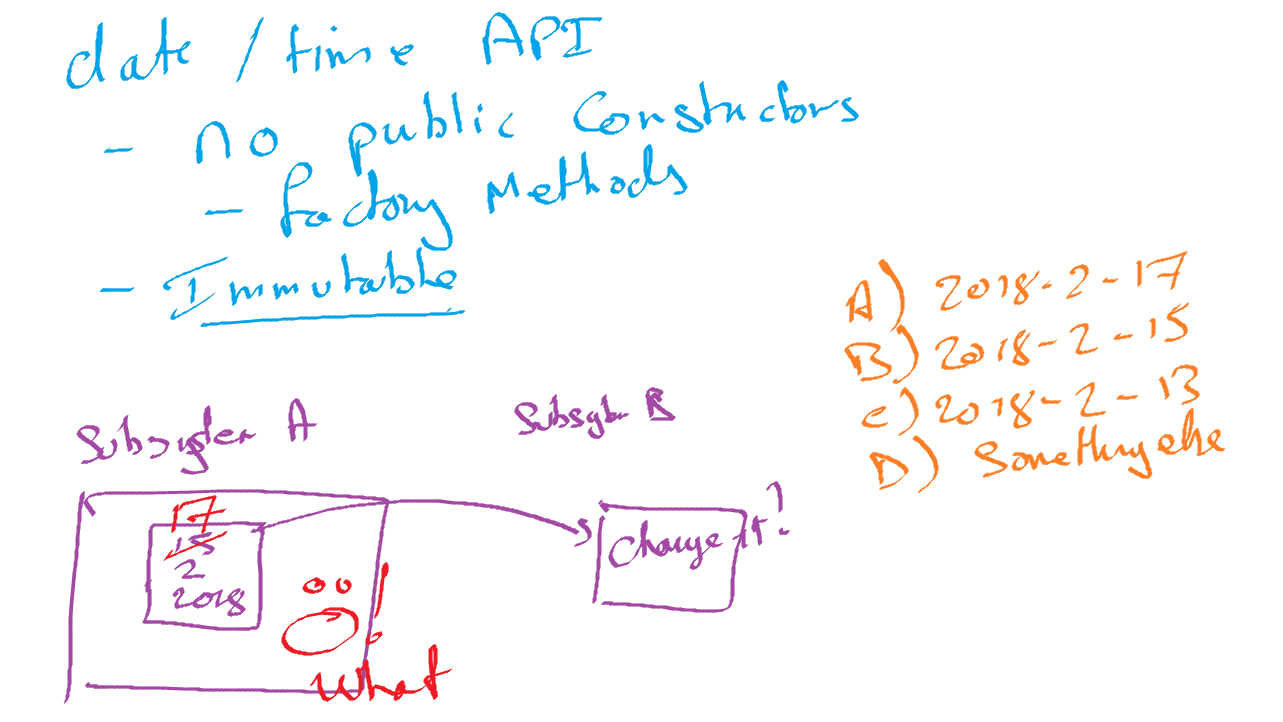 date / time API
- no public Constructors
- factory Methods
- Immutable
A) 2018-2-17
B) 2018-2-15
C) 2018-2-13
D) Something else
Subsystem A
Subsystem B
17
15
2
2018
Change it?
!
What